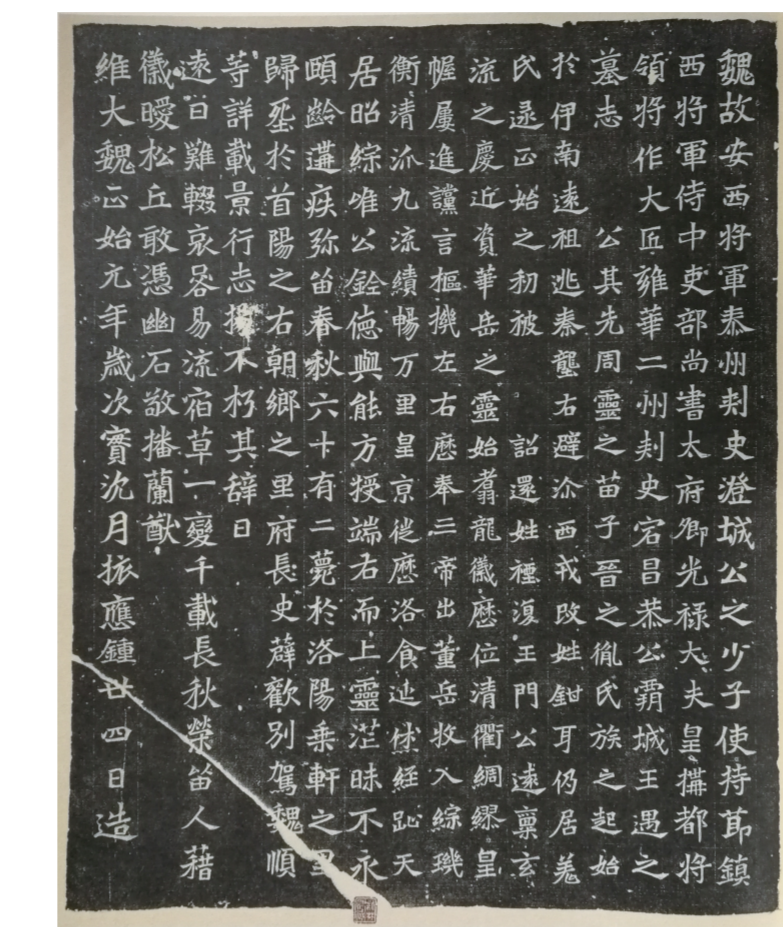 魏故安西將軍泰州刾史澄城公之少子使持莭鎮
西將軍侍中吏部尚書太府卿光禄大夫皇構都將
領將作大匠雍華二州刾史宕昌恭公霸城王遇之
墓志 公其先周靈之苗子晉之胤氏族之起始
於伊南遠祖逃秦壟右避沴西戎改姓鉗耳仍居羗
氏逯正始之初被 詔還姓禋復王門公遠稟玄
流之慶近資華岳之靈始翥龍徽歷位清衢綢繆皇
幄屢進讜言樞機左右歷奉三帝出董岳牧入綜璣
衡清派九流績暢万里皇京徙歷洛食延俅經趾天
居昭綜唯公銓德與能方授端右而上靈茫昧不永
頤齡遘疾弥留春秋六十有二薨於洛陽乗軒之里
歸塟於首陽之右朝鄉之里府長史薜歡別駕魏順
等詳載景行志揚不朽其辞曰
遠日難輟哀晷易流宿草一變千載長秋榮留人藉
徽曖松丘敢憑幽石敬播蘭猷
維大魏正始元年歲次實沈月振應鍾廿四日造